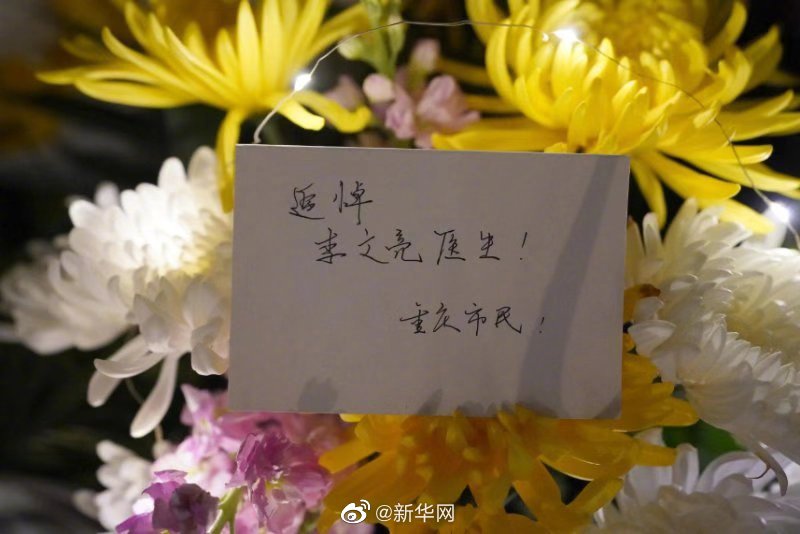 追悼
李文亮医生！
重庆市民！
@新华网